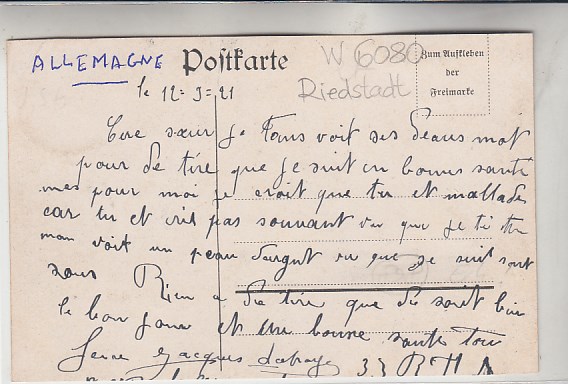 ALLEMAGNE Postkarte W 6080 Zum Aufkleben
der
Freimarke
Riedstadt
le 12-3-21
Cere sœur je vous voit ses deaus mot
pour de tire que je suit en bonne sante
mes pour moi je croit que tu et mallade
car tu et crit pas souvant vu que je ti
man voit un peau dargut vu que je suit sont
sous Rien a die tire que die soit bin
le bon jour et une bonne sante tous
Jacques 33 R H A